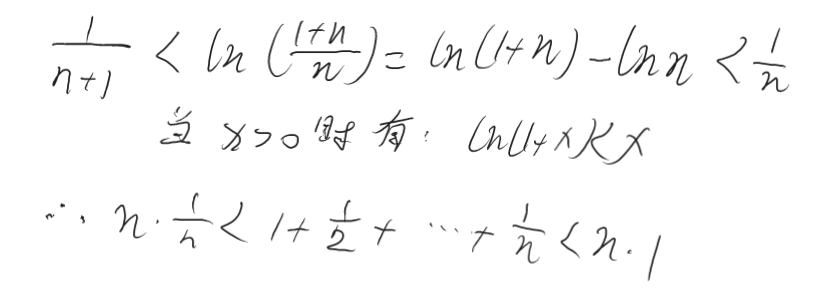 1/(n+1) < ln((1+n)/n) = ln(1+n) - ln n < 1/n
当 x>0 时有: ln(1+x)<x
∴ n·1/n < 1 + 1/2 + ⋯ + 1/n < n·1